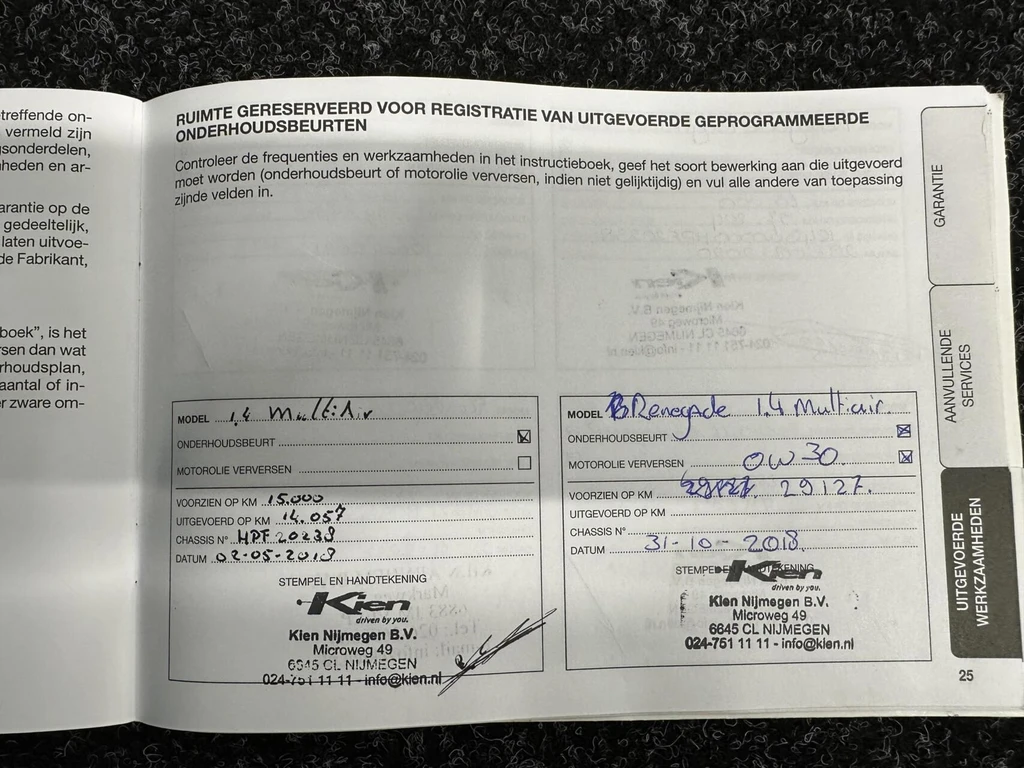 treffende on-
vermeld zijn
gsonderdelen,
heden en ar-
arantie op de
gedeeltelijk,
laten uitvoe-
de Fabrikant,
boek", is het
rsen dan wat
rhoudsplan,
aantal of in-
er zware om-
RUIMTE GERESERVEERD VOOR REGISTRATIE VAN UITGEVOERDE GEPROGRAMMEERDE
ONDERHOUDSBEURTEN
Controleer de frequenties en werkzaamheden in het instructieboek, geef het soort bewerking aan die uitgevoerd
moet worden (onderhoudsbeurt of motorolie verversen, indien niet gelijktijdig) en vul alle andere van toepassing
zijnde velden in.
MODEL 1,4 MultiAir
ONDERHOUDSBEURT
MOTOROLIE VERVERSEN
VOORZIEN OP KM 15.000
UITGEVOERD OP KM 14.057
CHASSIS N° HPF 20238
DATUM 02-05-2018
STEMPEL EN HANDTEKENING
Kien
driven by you.
Kien Nijmegen B.V.
Microweg 49
6545 CL NIJMEGEN
024-751 11 11 - info@kien.nl
MODEL Renegade 1.4 Multiair.
ONDERHOUDSBEURT
MOTOROLIE VERVERSEN OW30
VOORZIEN OP KM 29127.
UITGEVOERD OP KM
CHASSIS N°
DATUM 31-10-2018
STEMPEL EN HANDTEKENING
Kien
driven by you.
Kien Nijmegen B.V.
Microweg 49
6645 CL NIJMEGEN
024-751 11 11 - info@kien.nl
GARANTIE
AANVULLENDE
SERVICES
UITGEVOERDE
WERKZAAMHEDEN
25